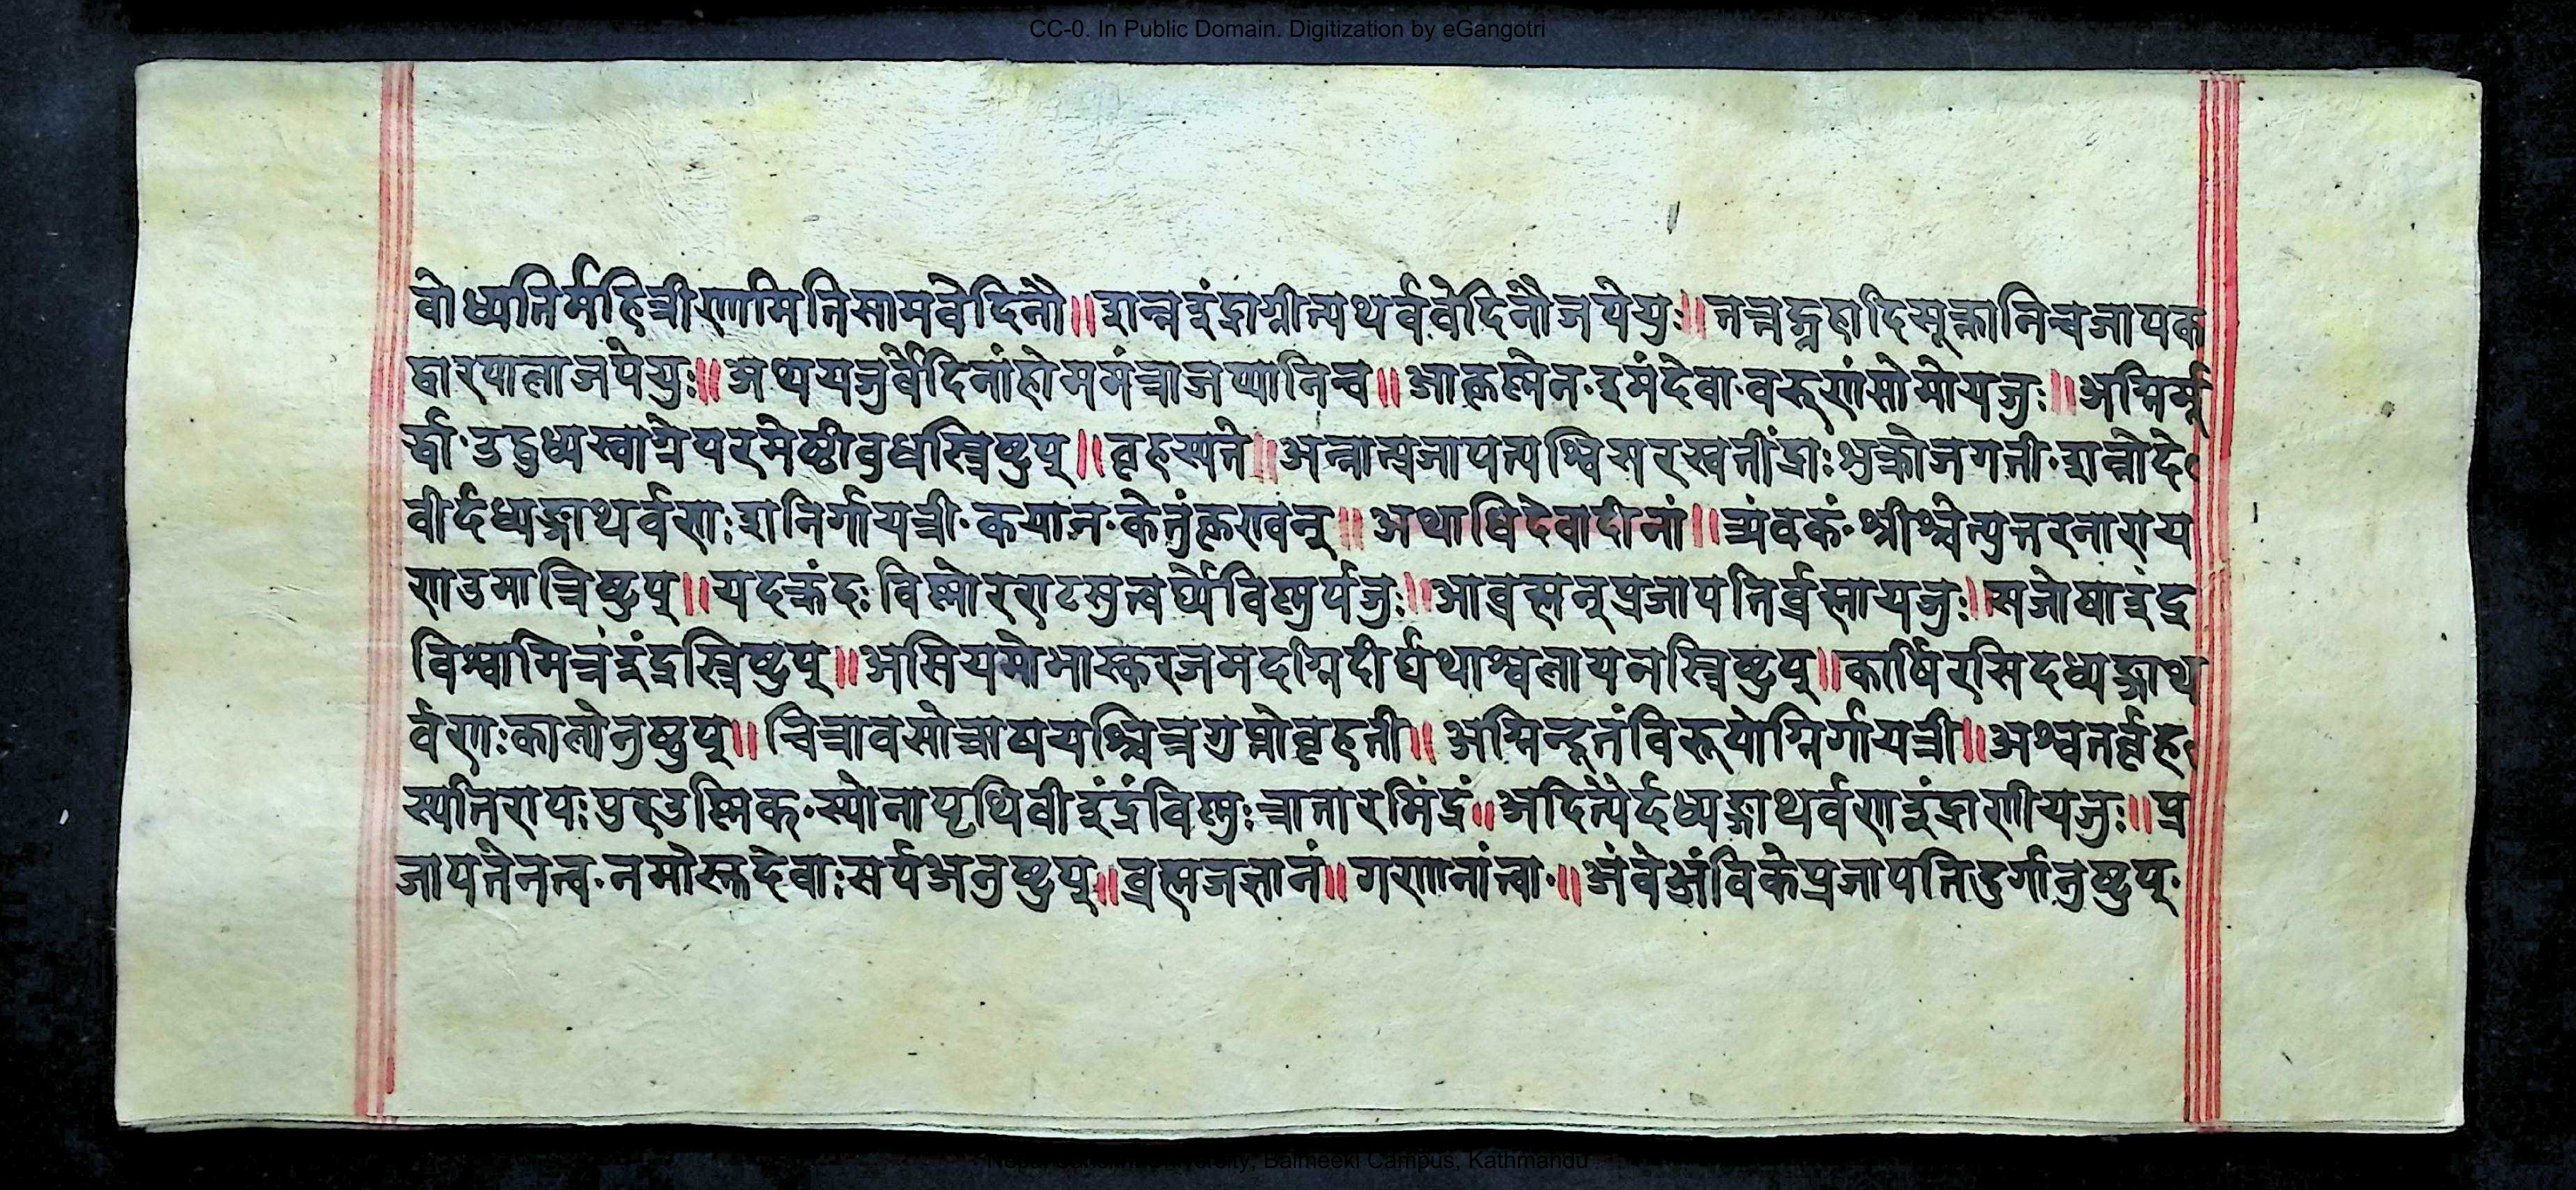 CC-0. In Public Domain. Digitization by eGangotri
वोध्यतिर्महित्रीणामितिसामवेदिनौ॥ शन्नइंद्राग्नीत्यथर्ववेदिनौजपेयुः॥ तत्तद्ग्रहादिसूक्तानिचजापक
द्वारपालाजपेयुः॥ अथयजुर्वेदिनांहोममंत्राजप्यानिच॥ आकृष्णेन·इमंदेवा·वरुणंसोमोयजुः॥ अग्निर्मू
र्द्धा·उद्बुध्यस्वाग्नेपरमेष्ठीबुधस्त्रिष्टुप्॥ बृहस्पते॥ अन्नात्प्रजापत्यश्विसरस्वतींद्राःशुक्रोजगती·शन्नोदे
वीर्दध्यङ्गाथर्वणःशनिर्गायत्री·कयान·केतुंकृण्वन्॥ अथाधिदेवादीनां॥ त्र्यंवकं·श्रीश्चेत्युत्तरनाराय
णउमात्रिष्टुप्॥ यदक्रंदः विष्णोरराटमुत्वर्घ्येविष्णुर्यजुः॥ आव्रह्मन्प्रजापतिर्व्रह्मायजुः॥ सजोषाइंद्र
विश्वामित्रइंद्रस्त्रिष्टुप्॥ असियमोभास्करजमदग्निदीर्घथाश्वलायनस्त्रिष्टुप्॥ कार्षिरसिदध्यङ्गाथ
र्वणःकालोनुष्टुप्॥ चित्रावसोत्राषयश्चित्रगुप्तोबृहती॥ अग्निन्दूतंविरूपोग्निर्गायत्री॥ अश्वतर्बृह
स्पतिरापःपुरउष्णिक्·स्योनापृथिवीइंद्रंविष्णुःत्रातारमिंद्रं॥ अदित्यैर्दध्यङ्गाथर्वणइंद्राणीयजुः॥ प्र
जापतेनत्व·नमोस्तदेवाःसर्पअनुष्टुप्॥ व्रह्मजज्ञानं॥ गणानांत्वा·॥ अंवेअंविकेप्रजापतिदुर्गानुष्टुप्·
Nepal Sanskrit University, Balmeeki Campus, Kathmandu